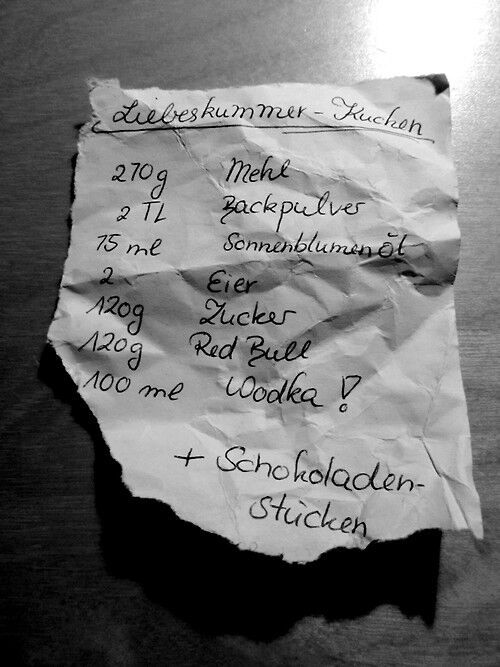 Liebeskummer-Kuchen
270g Mehl
2 TL Backpulver
75 ml Sonnenblumenöl
2 Eier
120g Zucker
120g Red Bull
100 ml Wodka!
+ Schokoladen-
stücken